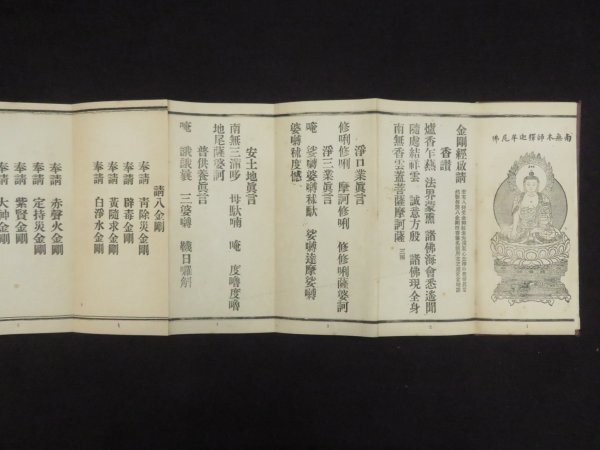 南無本師釋迦牟尼佛
金剛經啟請
香讚
爐香乍爇 法界蒙熏 諸佛海會悉遙聞
隨處結祥雲 誠意方殷 諸佛現全身
南無香雲蓋菩薩摩訶薩 三稱
淨口業眞言
修唎修唎 摩訶修唎 修修唎薩婆訶
淨三業眞言
唵 娑嚩婆嚩秫馱 娑嚩達摩娑嚩
婆嚩秫度憾
安土地眞言
南無三滿哆 母馱喃 唵 度嚕度嚕
地尾薩婆訶
普供養眞言
唵 誐誐曩 三婆嚩 韈日囉斛
請八金剛
奉請 青除災金剛
奉請 辟毒金剛
奉請 黃隨求金剛
奉請 白淨水金剛
奉請 赤聲火金剛
奉請 定持災金剛
奉請 紫賢金剛
奉請 大神金剛